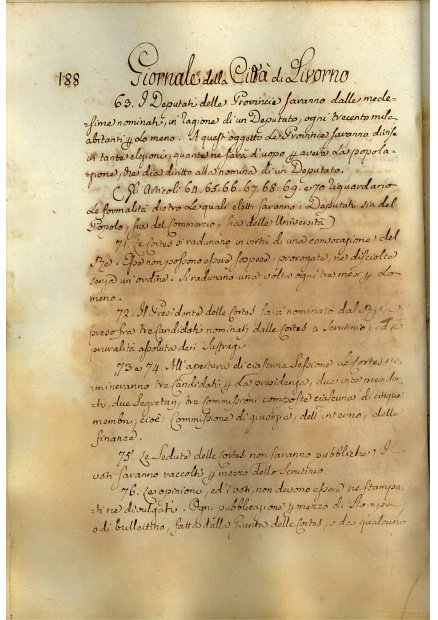 188 Giornale della Città di Livorno
63. I Deputati delle Provincie saranno dalle mede-
sime nominati, in ragione di un Deputato, ogni trecento mila
abitanti y Lo meno. A quest'oggetto Le Provincie saranno divise
in tante elezioni, quante ne farà d'uopo y avere La popola-
zione, che dia diritto alla nomina di un Deputato.
(Gli Articoli 64. 65. 66. 67. 68. 69. e 70 riguardano
Le formalità dietro Le quali eletti saranno i Deputati sia del
Popolo, sia del Commercio, sia delle Università)
71. Le Cortes si radunano in virtù di una convocazione del
Rè. Esse non possono essere sospese, prorogate, nè disciolte
senza un'ordine. Si radunano una volta ogni tre mesi y Lo
meno.
72. Il Presidente delle Cortes sarà nominato dal
preso fra tre Candidati nominati dalle Cortes a Scrutinio, ed a
pruralità assoluta dei Suffragi
73 e 74 All'apertura di ciascuna Sessione Le Cortes no-
mineranno tre Candidati y La presidenza, due vice presiden-
ti, due Segretari, tre Commissioni composte ciascuna di cinque
membri, cioè: Commissione di giustizia, dell'interno, delle
finanze.
75. Le Sedute delle Cortes non saranno pubbliche; I
voti saranno raccolti y mezzo dello Scrutinio
76. Le opinioni, ed i voti non devono essere nè stampa-
ti nè divulgati. Ogni pubblicazione y mezzo di stampa,
o di bullettino, fatta dalla Giunta delle Cortes, o da qualcuno